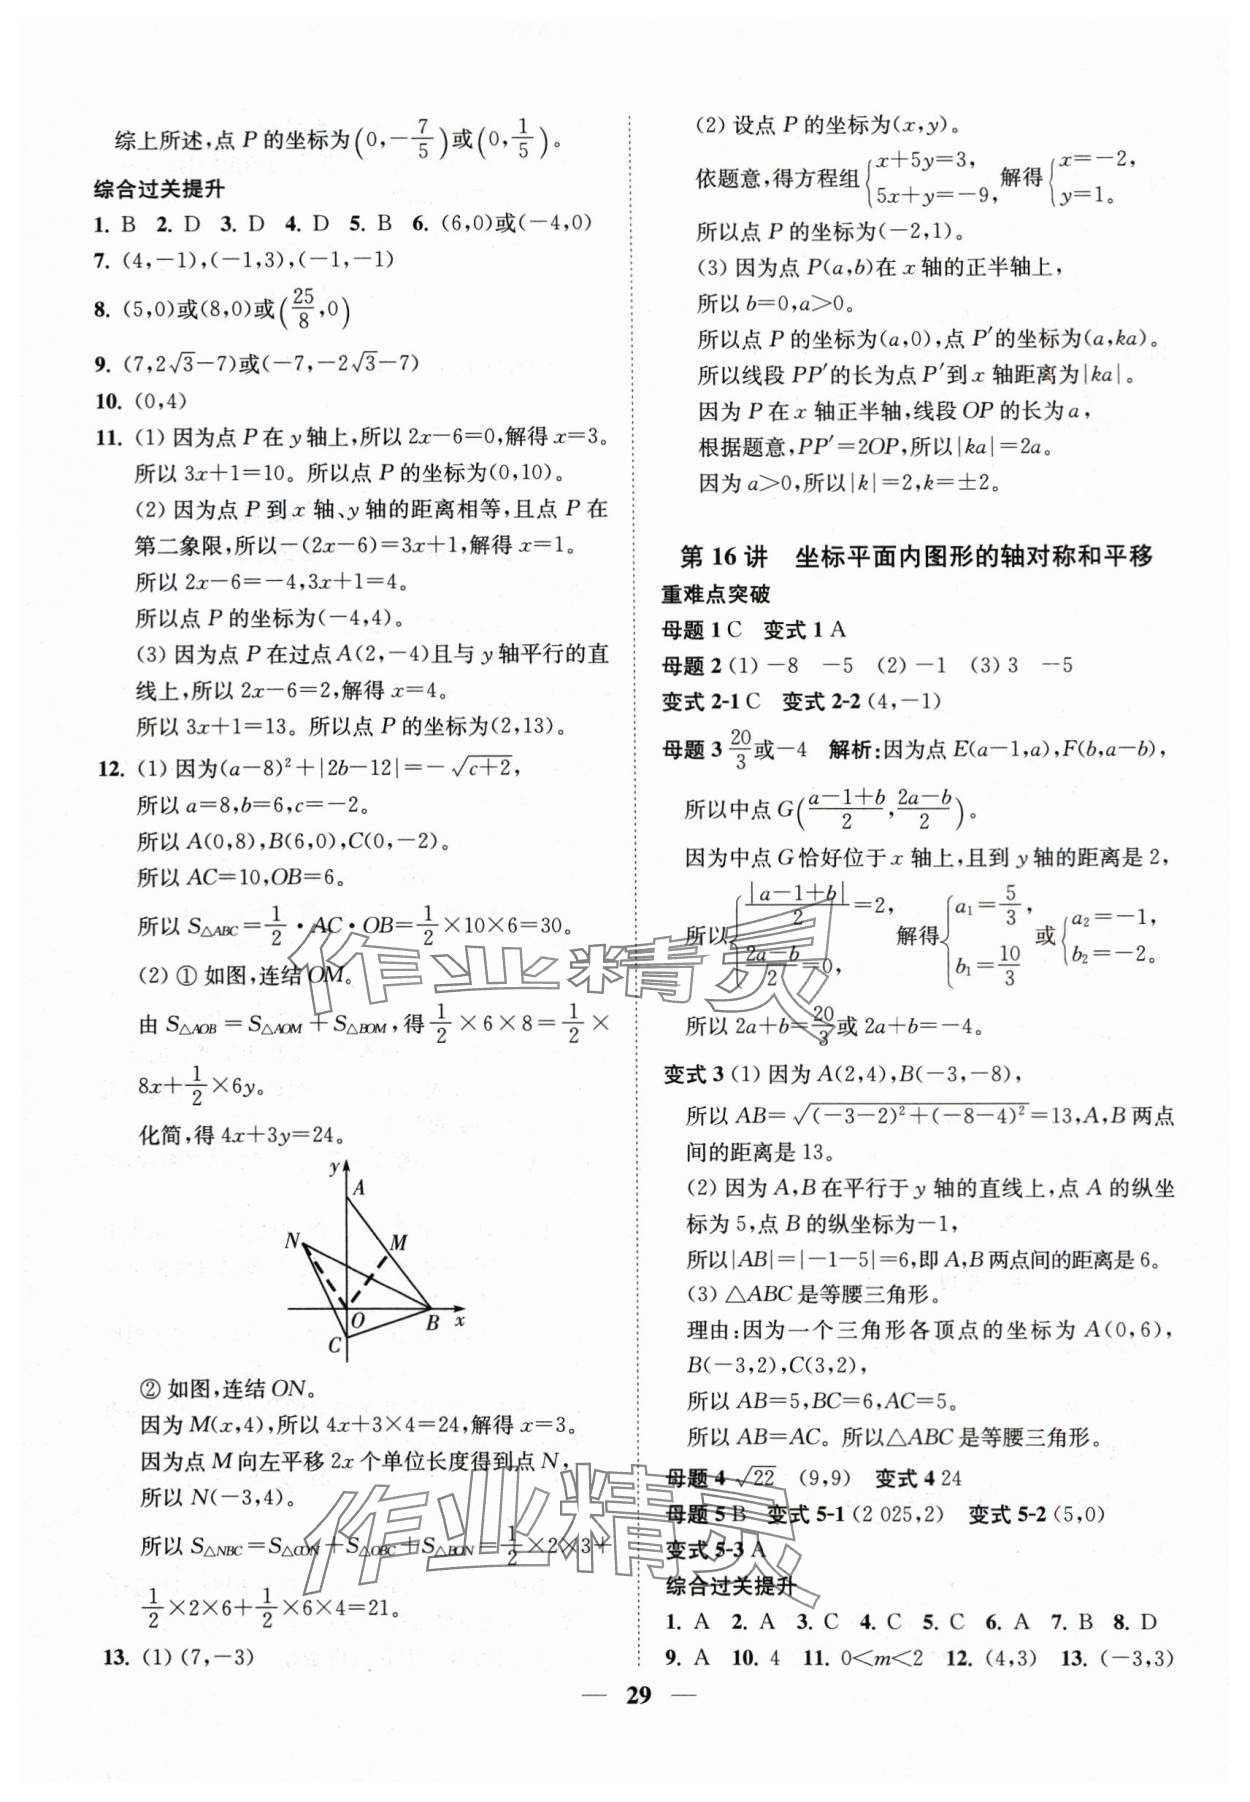 综上所述,点 P 的坐标为(0,-7/5)或(0,1/5)。
综合过关提升
1. B 2. D 3. D 4. D 5. B 6. (6,0)或(-4,0)
7. (4,-1),(-1,3),(-1,-1)
8. (5,0)或(8,0)或(25/8,0)
9. (7,2√3-7)或(-7,-2√3-7)
10. (0,4)
11. (1) 因为点 P 在 y 轴上,所以 2x-6=0,解得 x=3。
所以 3x+1=10。所以点 P 的坐标为(0,10)。
(2) 因为点 P 到 x 轴、y 轴的距离相等,且点 P 在
第二象限,所以-(2x-6)=3x+1,解得 x=1。
所以 2x-6=-4,3x+1=4。
所以点 P 的坐标为(-4,4)。
(3) 因为点 P 在过点 A(2,-4)且与 y 轴平行的直
线上,所以 2x-6=2,解得 x=4。
所以 3x+1=13。所以点 P 的坐标为(2,13)。
12. (1) 因为(a-8)²+|2b-12|=-√(c+2),
所以 a=8,b=6,c=-2。
所以 A(0,8),B(6,0),C(0,-2)。
所以 AC=10,OB=6。
所以 S△ABC=1/2·AC·OB=1/2×10×6=30。
(2) ① 如图,连结 OM。
由 S△AOB=S△AOM+S△BOM,得 1/2×6×8=1/2×
8x+1/2×6y。
化简,得 4x+3y=24。
y
A
N
M
O
B
x
C
② 如图,连结 ON。
因为 M(x,4),所以 4x+3×4=24,解得 x=3。
因为点 M 向左平移 2x 个单位长度得到点 N,
所以 N(-3,4)。
所以 S△NBC=S△CON+S△OBC+S△BON=1/2×2×3+
1/2×2×6+1/2×6×4=21。
13. (1) (7,-3)
(2) 设点 P 的坐标为(x,y)。
依题意,得方程组{x+5y=3, 5x+y=-9, 解得{x=-2, y=1。
所以点 P 的坐标为(-2,1)。
(3) 因为点 P(a,b)在 x 轴的正半轴上,
所以 b=0,a>0。
所以点 P 的坐标为(a,0),点 P′的坐标为(a,ka)。
所以线段 PP′的长为点 P′到 x 轴距离为|ka|。
因为 P 在 x 轴正半轴,线段 OP 的长为 a,
根据题意,PP′=2OP,所以|ka|=2a。
因为 a>0,所以|k|=2,k=±2。
第 16 讲 坐标平面内图形的轴对称和平移
重难点突破
母题 1 C 变式 1 A
母题 2 (1) -8 -5 (2) -1 (3) 3 -5
变式 2-1 C 变式 2-2 (4,-1)
母题 3 20/3或-4 解析:因为点 E(a-1,a),F(b,a-b),
所以中点 G((a-1+b)/2,(2a-b)/2)。
因为中点 G 恰好位于 x 轴上,且到 y 轴的距离是 2,
所以{|a-1+b|/2=2, (2a-b)/2=0, 解得{a₁=5/3, b₁=10/3 或{a₂=-1, b₂=-2。
所以 2a+b=20/3或 2a+b=-4。
变式 3 (1) 因为 A(2,4),B(-3,-8),
所以 AB=√((-3-2)²+(-8-4)²)=13,A,B 两点
间的距离是 13。
(2) 因为 A,B 在平行于 y 轴的直线上,点 A 的纵坐
标为 5,点 B 的纵坐标为-1,
所以|AB|=|-1-5|=6,即 A,B 两点间的距离是 6。
(3) △ABC 是等腰三角形。
理由:因为一个三角形各顶点的坐标为 A(0,6),
B(-3,2),C(3,2),
所以 AB=5,BC=6,AC=5。
所以 AB=AC。所以△ABC 是等腰三角形。
母题 4 √22 (9,9) 变式 4 24
母题 5 B 变式 5-1 (2 025,2) 变式 5-2 (5,0)
变式 5-3 A
综合过关提升
1. A 2. A 3. C 4. C 5. C 6. A 7. B 8. D
9. A 10. 4 11. 0<m<2 12. (4,3) 13. (-3,3)
— 29 —
作业精灵
作业精灵